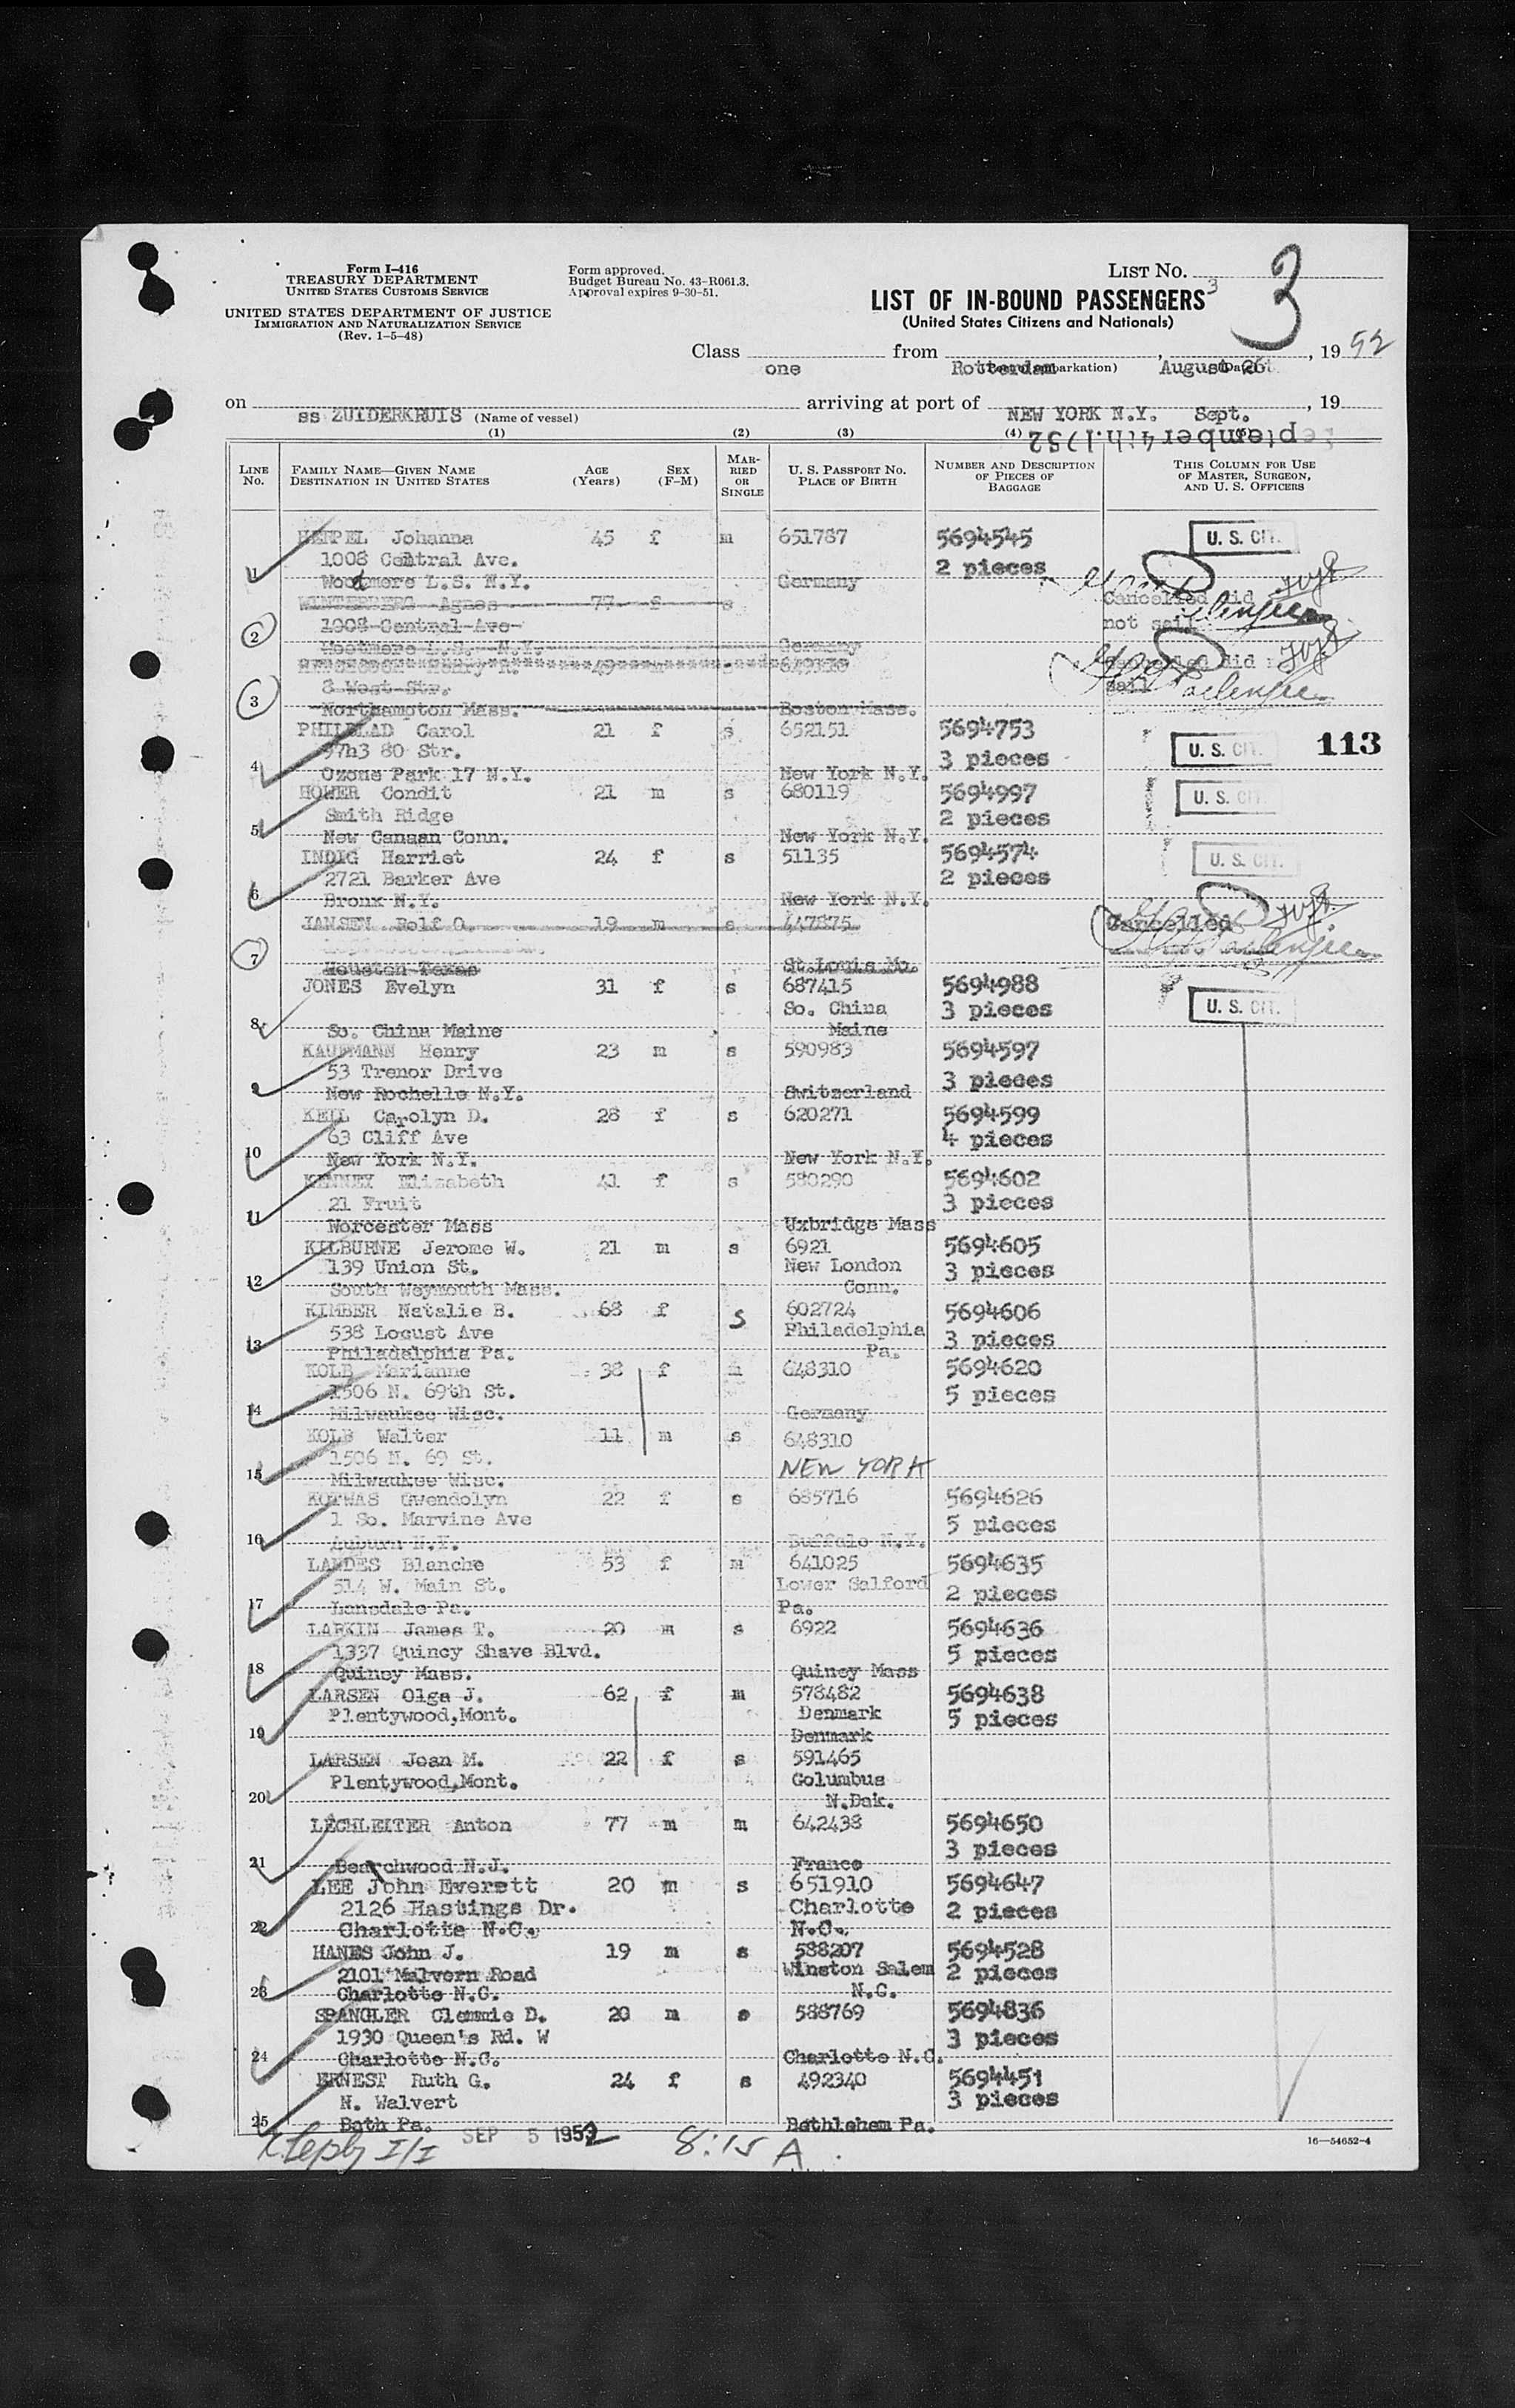 Form I-416
TREASURY DEPARTMENT
UNITED STATES CUSTOMS SERVICE
UNITED STATES DEPARTMENT OF JUSTICE
IMMIGRATION AND NATURALIZATION SERVICE
(Rev. 1-5-48)
Form approved.
Budget Bureau No. 43-R061.3.
Approval expires 9-30-51.
LIST No. 3
3
LIST OF IN-BOUND PASSENGERS
(United States Citizens and Nationals)
Class one from Rotterdam, August 26, 1952
on ss ZUIDERKRUIS (Name of vessel) arriving at port of NEW YORK N.Y. Sept. , 19
September 4th.1952
(1) (2) (3) (4)
LINE No. FAMILY NAME—GIVEN NAME DESTINATION IN UNITED STATES AGE (Years) SEX (F-M) MARRIED OR SINGLE U. S. PASSPORT NO. PLACE OF BIRTH NUMBER AND DESCRIPTION OF PIECES OF BAGGAGE THIS COLUMN FOR USE OF MASTER, SURGEON, AND U. S. OFFICERS
Johanna 45 f m 651787 5694545 U. S. CIT.
1008 Central Ave. 2 pieces
1 Woodmere L.S. N.Y. Germany
WINTERBERG Agnes 77 f s Cancelled did
2 1008 Central Ave not sail
Woodmere L.S. N.Y. Germany
Henry 49 did
3 8 West Str. sail
Northampton Mass. Boston Mass.
PHILBLAD Carol 21 f s 652151 5694753 U. S. CIT. 113
97h3 80 Str. 3 pieces
4 Ozone Park 17 N.Y. New York N.Y.
HOWER Condit 21 m s 680119 5694997 U. S. CIT.
Smith Ridge 2 pieces
5 New Canaan Conn. New York N.Y.
INDIG Harriet 24 f s 51135 5694574 U. S. CIT.
2721 Barker Ave 2 pieces
6 Bronx N.Y. New York N.Y.
JANSEN Rolf O. 19 m s 447875 Cancelled
7 Houston Texas St.Louis Mo.
JONES Evelyn 31 f s 687415 5694988 U. S. CIT.
So. China 3 pieces
8 So. China Maine Maine
KAUFMANN Henry 23 m s 590983 5694597
53 Trenor Drive 3 pieces
9 New Rochelle N.Y. Switzerland
KEIL Carolyn D. 28 f s 620271 5694599
63 Cliff Ave 4 pieces
10 New York N.Y. New York N.Y.
KENNEY Elizabeth 41 f s 580290 5694602
21 Fruit 3 pieces
11 Worcester Mass Uxbridge Mass
KILBURNE Jerome W. 21 m s 6921 5694605
139 Union St. New London 3 pieces
12 South Weymouth Mass. Conn.
KIMBER Natalie B. 68 f S 602724 5694606
538 Locust Ave Philadelphia 3 pieces
13 Philadelphia Pa. Pa.
KOLB Marianne 38 f m 648310 5694620
1506 N. 69th St. 5 pieces
14 Milwaukee Wisc. Germany
KOLB Walter 11 m s 648310
1506 N. 69 St. NEW YORK
15 Milwaukee Wisc.
KOTWAS Gwendolyn 22 f s 685716 5694626
1 So. Marvine Ave 5 pieces
16 Auburn N.Y. Buffalo N.Y.
LANDES Blanche 53 f m 641025 5694635
514 W. Main St. Lower Salford 2 pieces
17 Lansdale Pa. Pa.
LARKIN James T. 20 m s 6922 5694636
1337 Quincy Shave Blvd. 5 pieces
18 Quincy Mass. Quincy Mass
LARSEN Olga J. 62 f m 578482 5694638
Plentywood,Mont. Denmark 5 pieces
19 Denmark
LARSEN Joan M. 22 f s 591465
Plentywood,Mont. Columbus
20 N.Dak.
LECHLEITER Anton 77 m m 642438 5694650
3 pieces
21 Beachwood N.J. France
LEE John Everett 20 m s 651910 5694647
2126 Hastings Dr. Charlotte 2 pieces
22 Charlotte N.C. N.C.
HANES John J. 19 m s 588207 5694528
2101 Malvern Road Winston Salem 2 pieces
23 Charlotte N.C. N.C.
SPANGLER Clemmie D. 20 m s 588769 5694836
1930 Queen's Rd. W 3 pieces
24 Charlotte N.C. Charlotte N.C.
ERNEST Ruth G. 24 f s 492340 5694451
N. Walvert 3 pieces
25 Bath Pa. Bethlehem Pa.
SEP 5 1952 8:15 A
16—54652-4